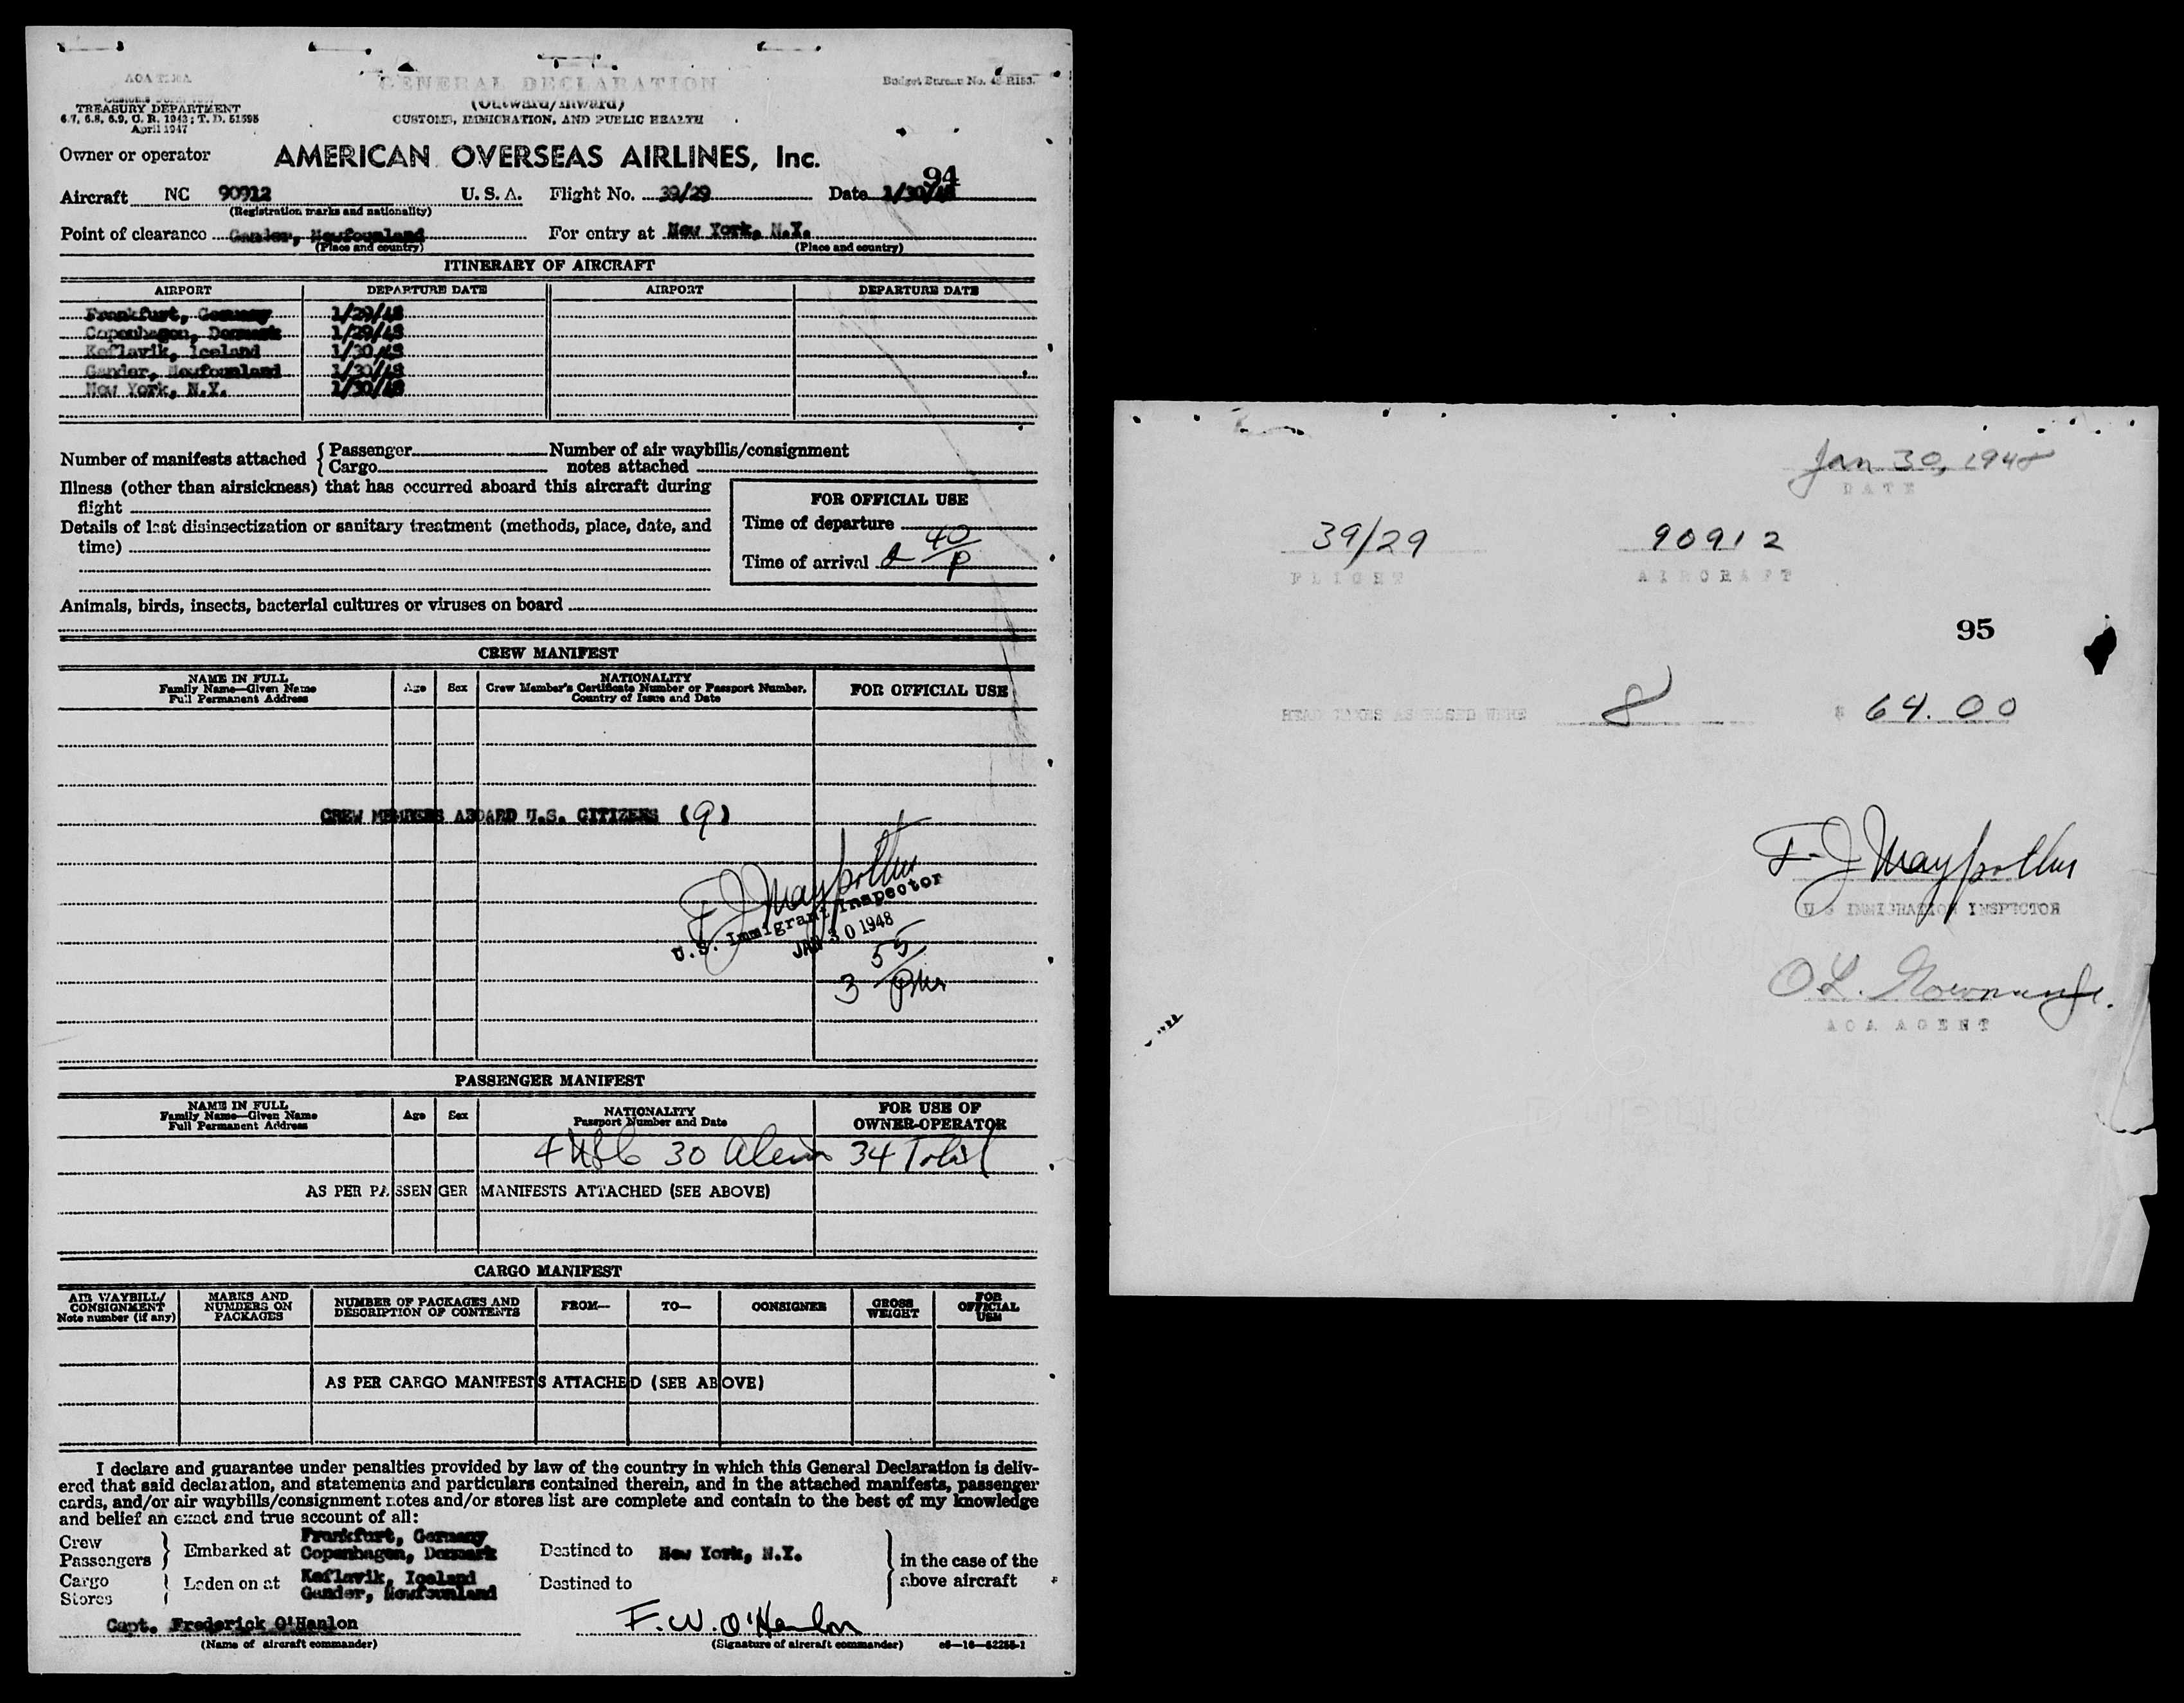 GENERAL DECLARATION
Budget Bureau No. R153.
(Outward/Inward)
TREASURY DEPARTMENT
6.7, 6.8, 6.9, C. R. 1943; T. D. 51595
April 1947
CUSTOMS, IMMIGRATION, AND PUBLIC HEALTH
Owner or operator AMERICAN OVERSEAS AIRLINES, Inc.
94
Aircraft NC 90912 U. S. A. Flight No. 39/29 Date 1/30/48
(Registration marks and nationality)
Point of clearance Gander, Newfounland For entry at New York, N.Y.
(Place and country) (Place and country)
ITINERARY OF AIRCRAFT
AIRPORT DEPARTURE DATE AIRPORT DEPARTURE DATE
Frankfurt, Germany 1/29/48
Copenhagen, Denmark 1/29/48
Keflavik, Iceland 1/30/48
Gander, Newfounland 1/30/48
New York, N.Y. 1/30/48
Number of manifests attached { Passenger Number of air waybills/consignment
Cargo notes attached
Illness (other than airsickness) that has occurred aboard this aircraft during
flight
Details of last disinsectization or sanitary treatment (methods, place, date, and
time)
FOR OFFICIAL USE
Time of departure
Time of arrival 2 40/P
Animals, birds, insects, bacterial cultures or viruses on board
CREW MANIFEST
NAME IN FULL
Family Name—Given Name
Full Permanent Address
Age Sex
NATIONALITY
Crew Member's Certificate Number or Passport Number,
Country of Issue and Date
FOR OFFICIAL USE
CREW MEMBERS ABOARD U.S. CITIZENS (9)
F J Maypother
U.S. Immigrant Inspector
JAN 30 1948
3 55/pm
PASSENGER MANIFEST
NAME IN FULL
Family Name—Given Name
Full Permanent Address
Age Sex
NATIONALITY
Passport Number and Date
FOR USE OF
OWNER-OPERATOR
4 USC 30 Alien 34 Total
AS PER PASSENGER MANIFESTS ATTACHED (SEE ABOVE)
CARGO MANIFEST
AIR WAYBILL/
CONSIGNMENT
Note number (if any)
MARKS AND
NUMBERS ON
PACKAGES
NUMBER OF PACKAGES AND
DESCRIPTION OF CONTENTS
FROM— TO— CONSIGNEE
GROSS
WEIGHT
FOR
OFFICIAL
USE
AS PER CARGO MANIFESTS ATTACHED (SEE ABOVE)
I declare and guarantee under penalties provided by law of the country in which this General Declaration is deliv-
ered that said declaration, and statements and particulars contained therein, and in the attached manifests, passenger
cards, and/or air waybills/consignment notes and/or stores list are complete and contain to the best of my knowledge
and belief an exact and true account of all:
Crew
Passengers } Embarked at Frankfurt, Germany
Copenhagen, Denmark
Destined to New York, N.Y.
Cargo
Stores } Laden on at Keflavik, Iceland
Gander, Newfounland
Destined to
in the case of the
above aircraft
Capt. Frederick O'Hanlon F. W. O'Hanlon
(Name of aircraft commander) (Signature of aircraft commander) 16—52255-1
Jan 30, 1948
DATE
39/29 90912
FLIGHT AIRCRAFT
95
HEAD TAXES ASSESSED WERE 8 $ 64.00
F J Maypother
U S IMMIGRATION INSPECTOR
O L.
AOA AGENT